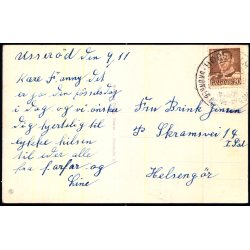 Usseröd den 9, 11
Kære Fanny det
er jo din födselsdag
i dag og vi önske
dig hjertelig til
lykke hilsen
til eder alle
fra Farfar og
Stine
Fru Brink Jensen
Skramsvej 14
I Sal
Helsengör